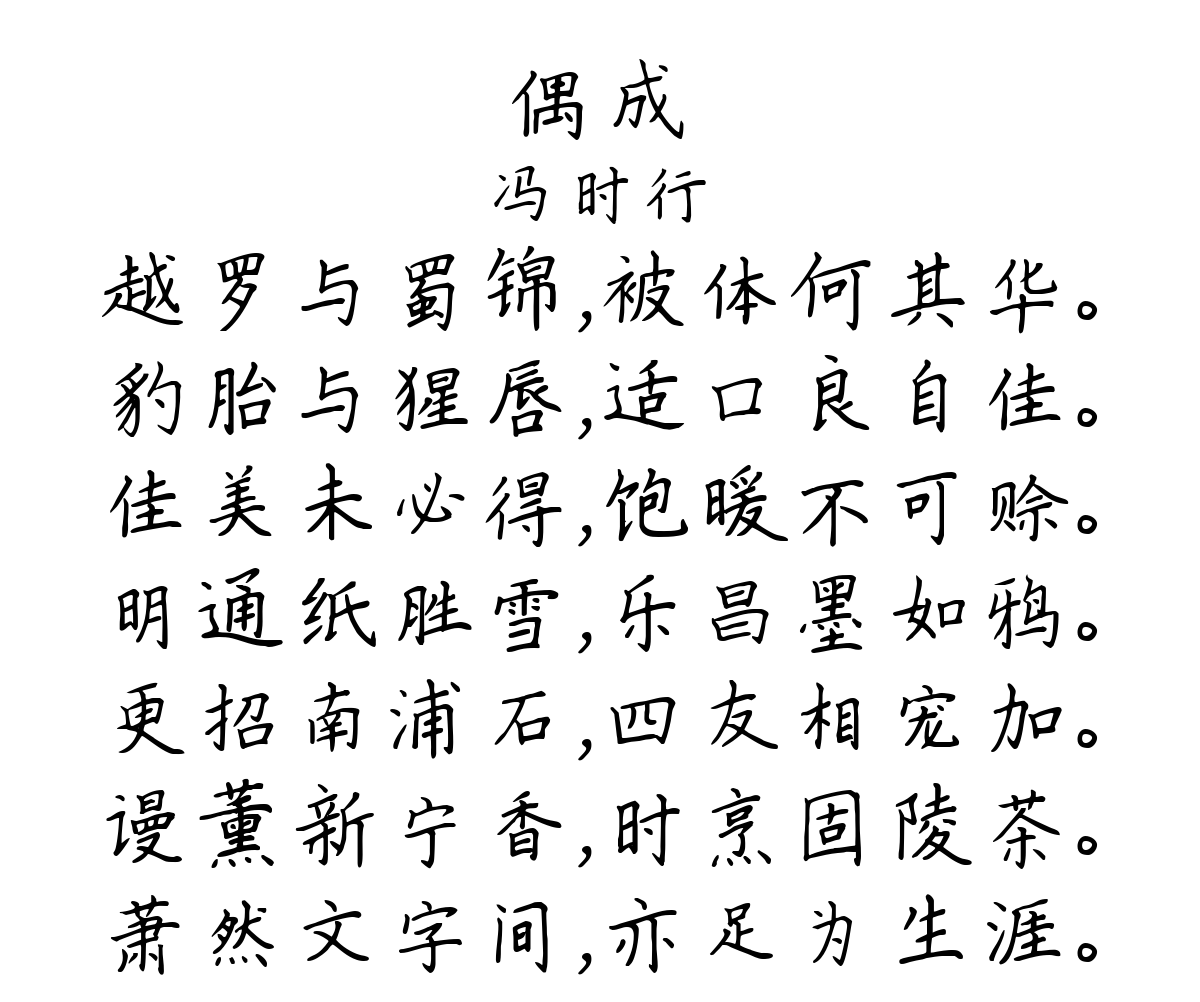 偶成
冯时行
越罗与蜀锦,被体何其华。
豹胎与猩唇,适口良自佳。
佳美未必得,饱暖不可赊。
明通纸胜雪,乐昌墨如鸦。
更招南浦石,四友相宠加。
谩薰新宁香,时烹固陵茶。
萧然文字间,亦足为生涯。